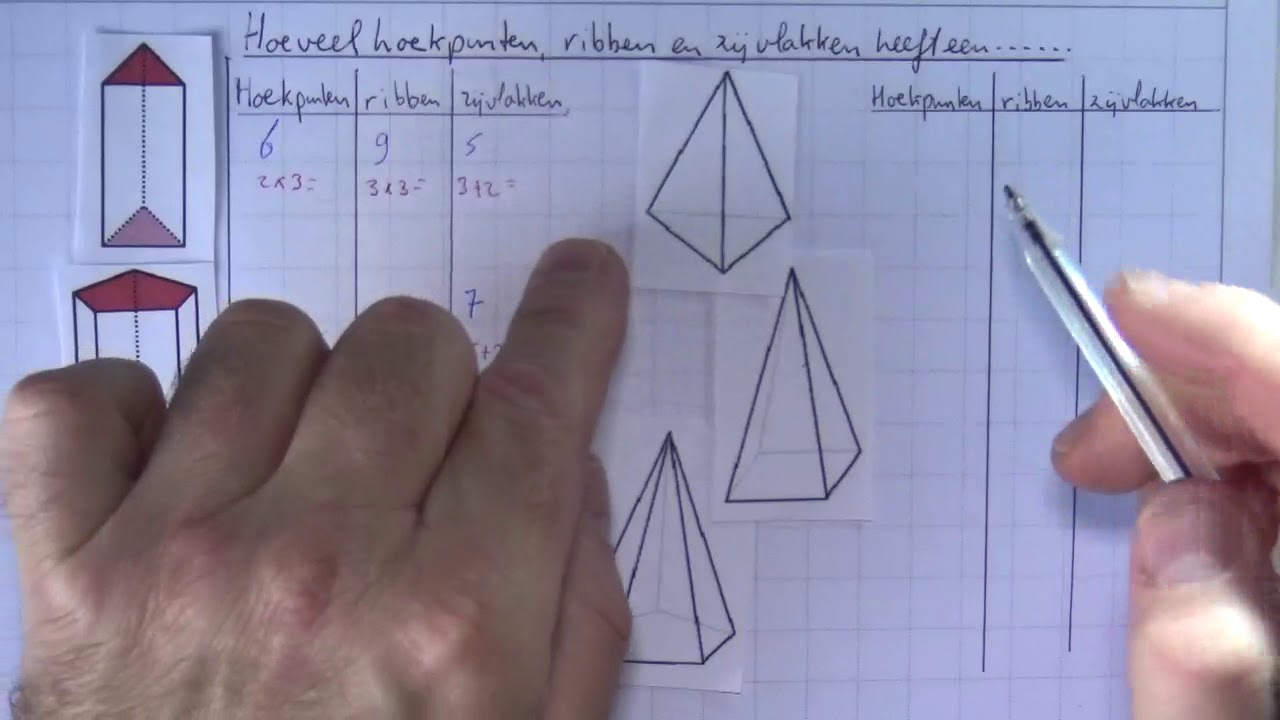 Hoeveel hoekpunten, ribben en zijvlakken heeft een.......
Hoekpunten ribben zijvlakken
6 9 5
2x3= 3x3= 3+2=
7
Hoekpunten ribben zijvlakken